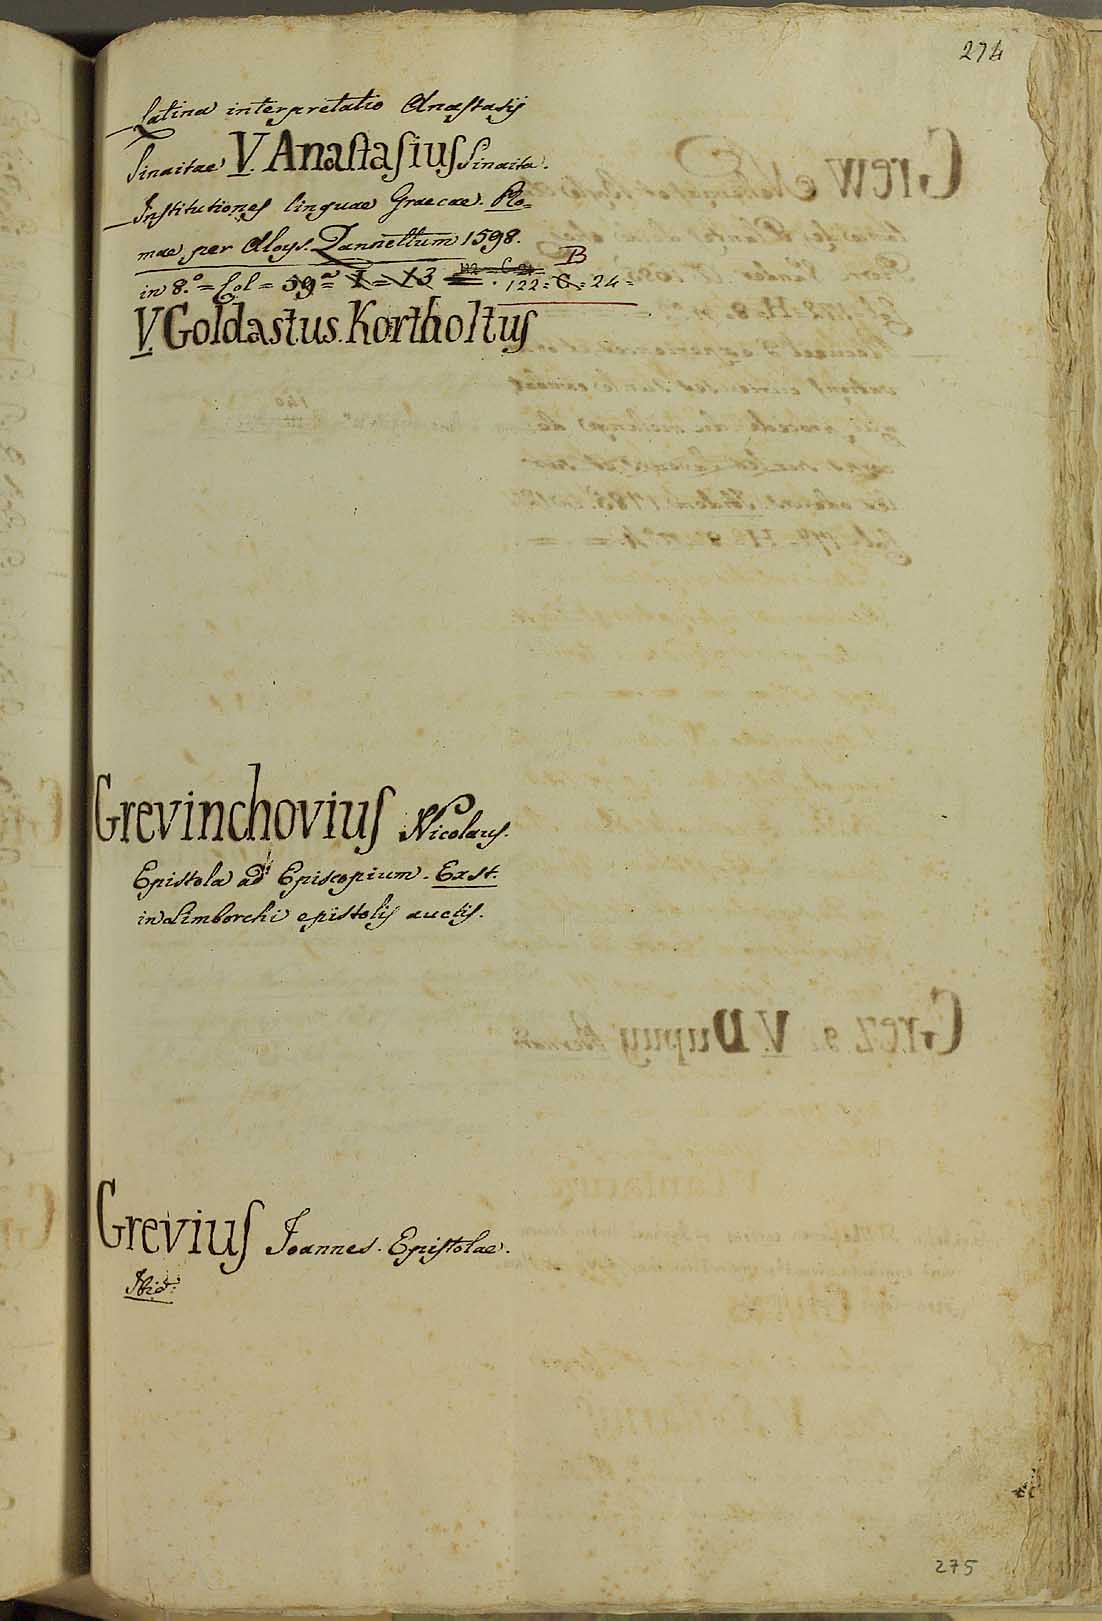 274
Latina interpretatio Anastasij
Sinaitae V. Anastasius Sinaita.
Institutiones linguae Graecae. Ro=
mae per Aloys. Zannettum 1598.
in 8.° = Col = 59 = I = 13 122 = C = 24 = B
V. Goldastus. Kortholtus
Grevinchovius Nicolaus.
Epistola ad Episcopium. Exst.
in Limborchi epistolis auctis.
Grevius Joannes. Epistolae.
Ibid.
275